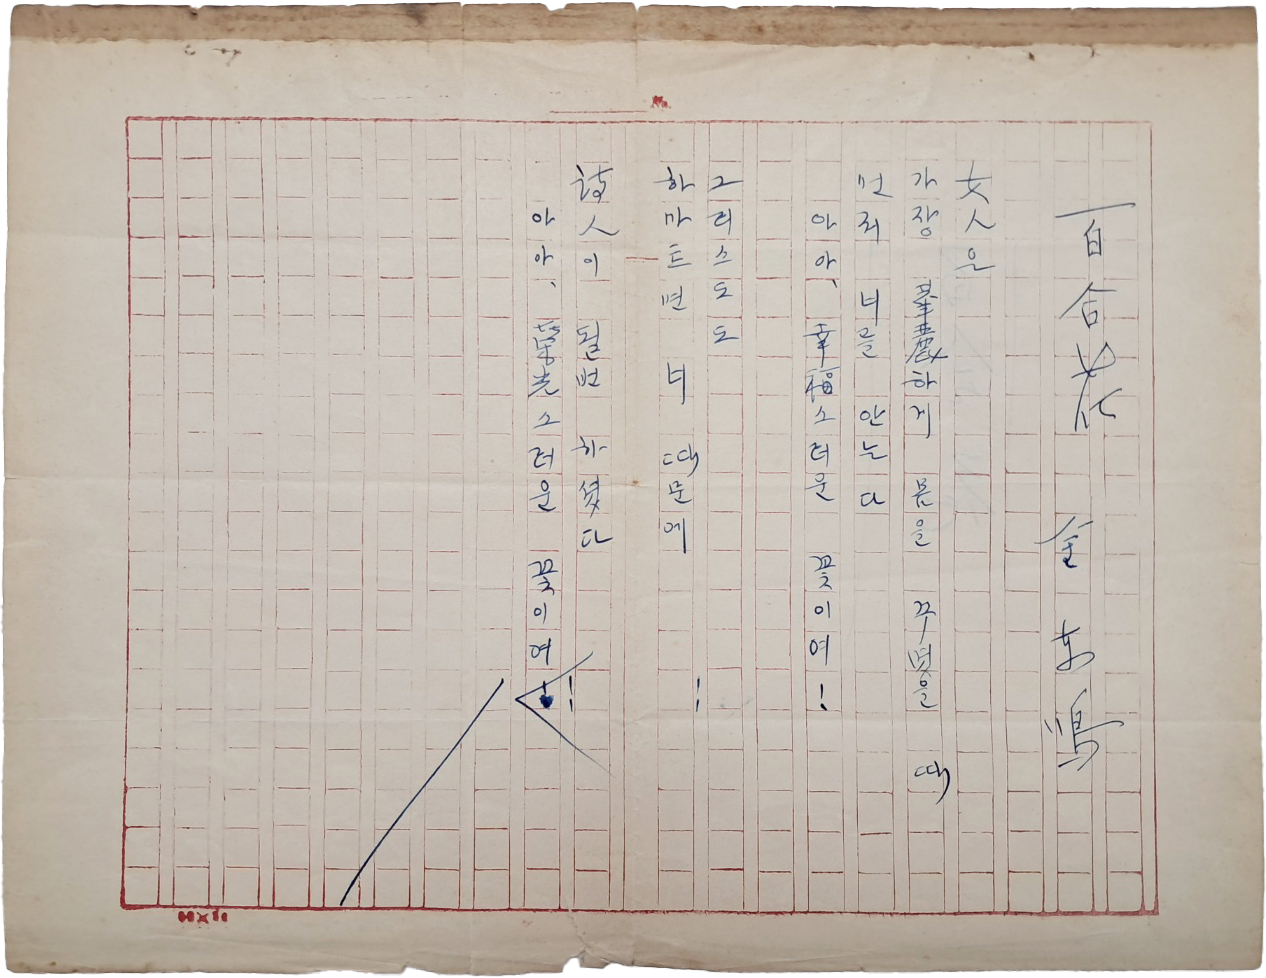 百合花 金東鳴
女人은
가장 華麗하게 몸을 꾸몃을 때
먼저 너를 안는다
아아、幸福스러운 꽃이여!
그리스도도
하마트면 너 때문에
詩人이 될번 하셧다
아아、榮光스러운 꽃이여!